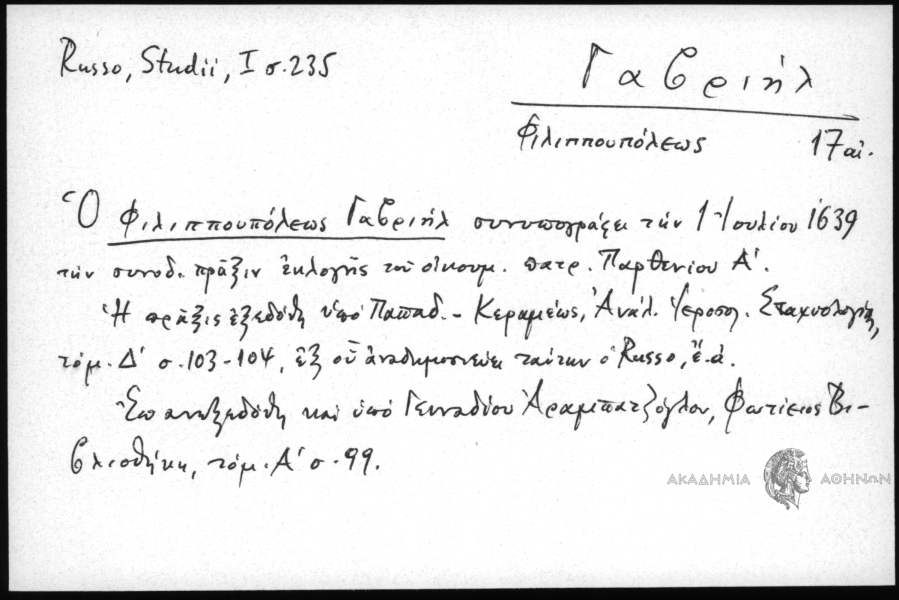 Russo, Studii, I σ. 235
Γαβριήλ
Φιλιππουπόλεως 17 αἰ.
Ὁ Φιλιππουπόλεως Γαβριήλ συνυπογράφει τὴν 1 Ἰουλίου 1639
τὴν συνοδ. πρᾶξιν ἐκλογῆς τοῦ οἰκουμ. πατρ. Παρθενίου Α΄.
Ἡ πρᾶξις ἐξεδόθη ὑπό Παπαδ. - Κεραμέως, Ἀνάλ. Ἱεροσολ. Σταχυολογίας,
τόμ. Δ΄ σ. 103-104, ἐξ οὗ ἀναδημοσιεύει ταύτην ὁ Russo, ἔ.ἀ.
ἀνεξεδόθη καί ὑπό Γενναδίου Ἀραμπατζόγλου, Φωτίειος Βι-
βλιοθήκη, τόμ. Α΄ σ. 99.
ΑΚΑΔΗΜΙΑ ΑΘΗΝΩΝ